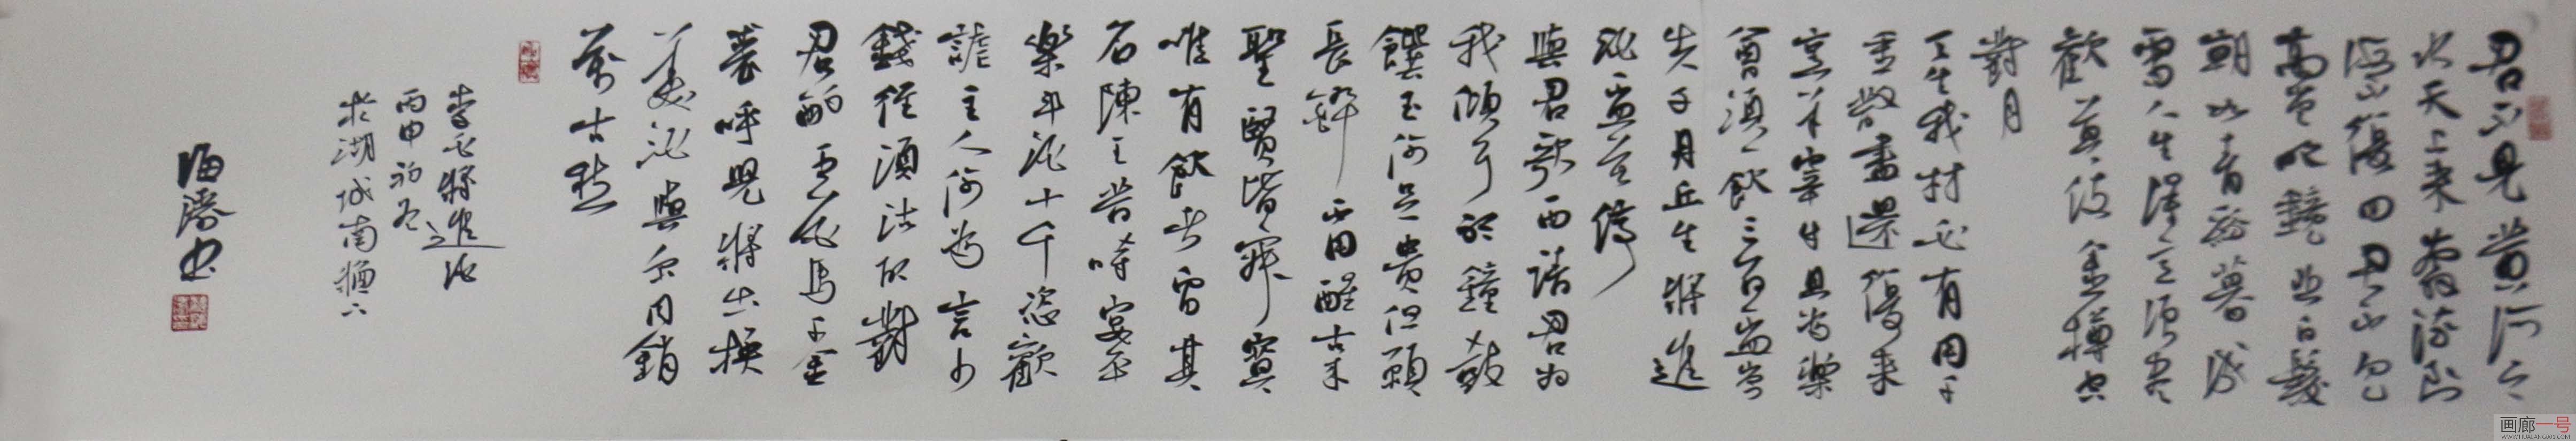 君不見黄河之
水天上来奔流到
海不復回君不見
高堂明鏡悲白髮
朝如青絲暮成
雪人生得意須盡
歡莫使金樽空
對月
天生我材必有用千
金散盡還復来
烹羊宰牛且為樂
會須一飲三百杯岑
夫子丹丘生將進
酒盃莫停
與君歌一曲請君为
我傾耳聽鐘鼓
饌玉何足貴但願
長醉不用醒古来
聖賢皆寂寞
唯有飲者留其
名陳王昔時宴平
樂斗酒十千恣歡
謔主人何為言少
錢徑須沽取對
君酌五花馬千金
裘呼兒將出換
美酒與尔同銷
萬古愁
李白將進酒
丙申初冬
於湖城南
海濤書
画廊一号
WWW.HUALANG001.COM